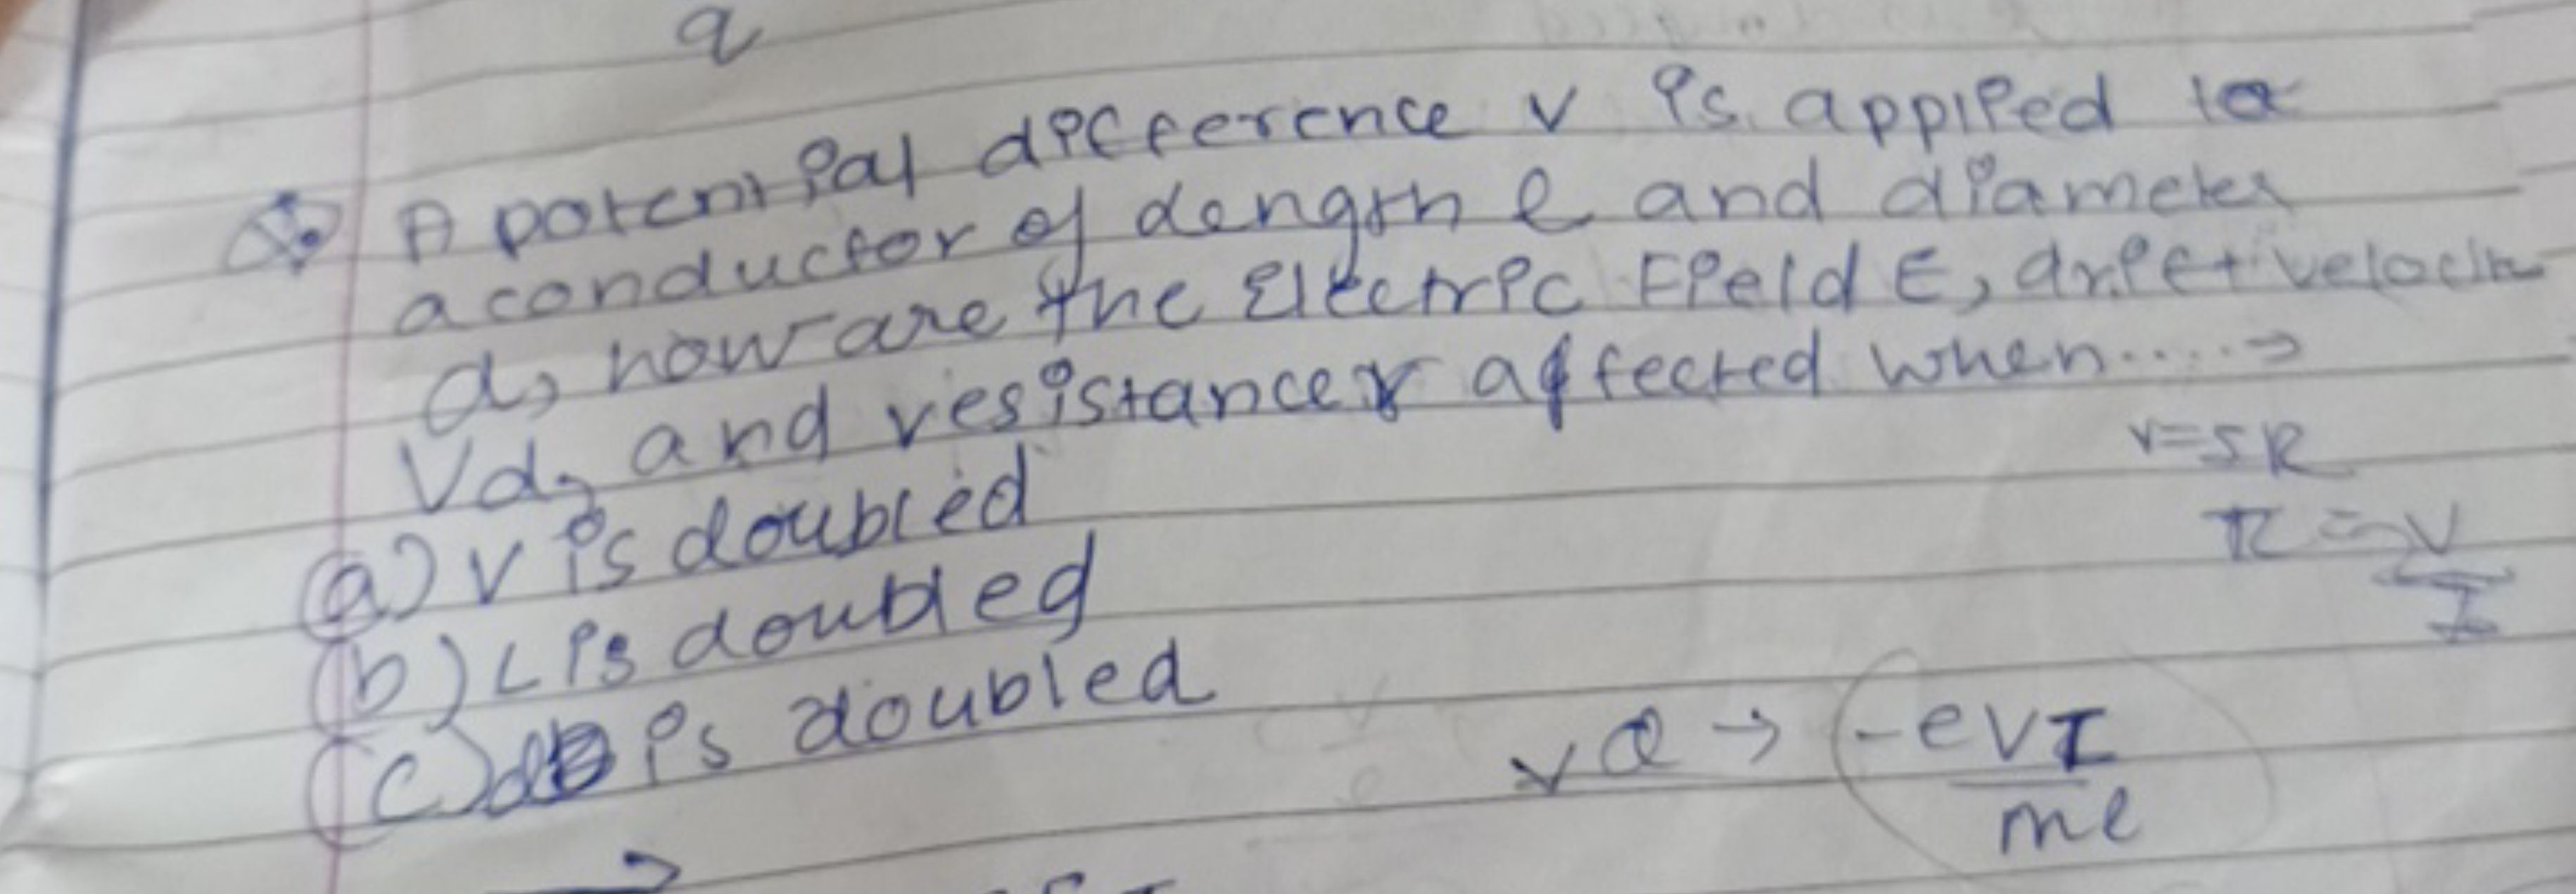 q
A potential difference v is applied to
a conductor of length l and diameter
d, how are the Electric Field E, drift velocity
Vd, and resistance r affected when....→
v=IR
R=V
I
(a) v is doubled
(b) L is doubled
(c) d is doubled
vd → -evτ
ml